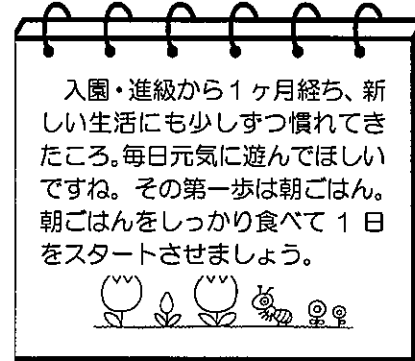 入園・進級から1ヶ月経ち、新
しい生活にも少しずつ慣れてき
たころ。毎日元気に遊んでほしい
ですね。その第一歩は朝ごはん。
朝ごはんをしっかり食べて 1 日
をスタートさせましょう。